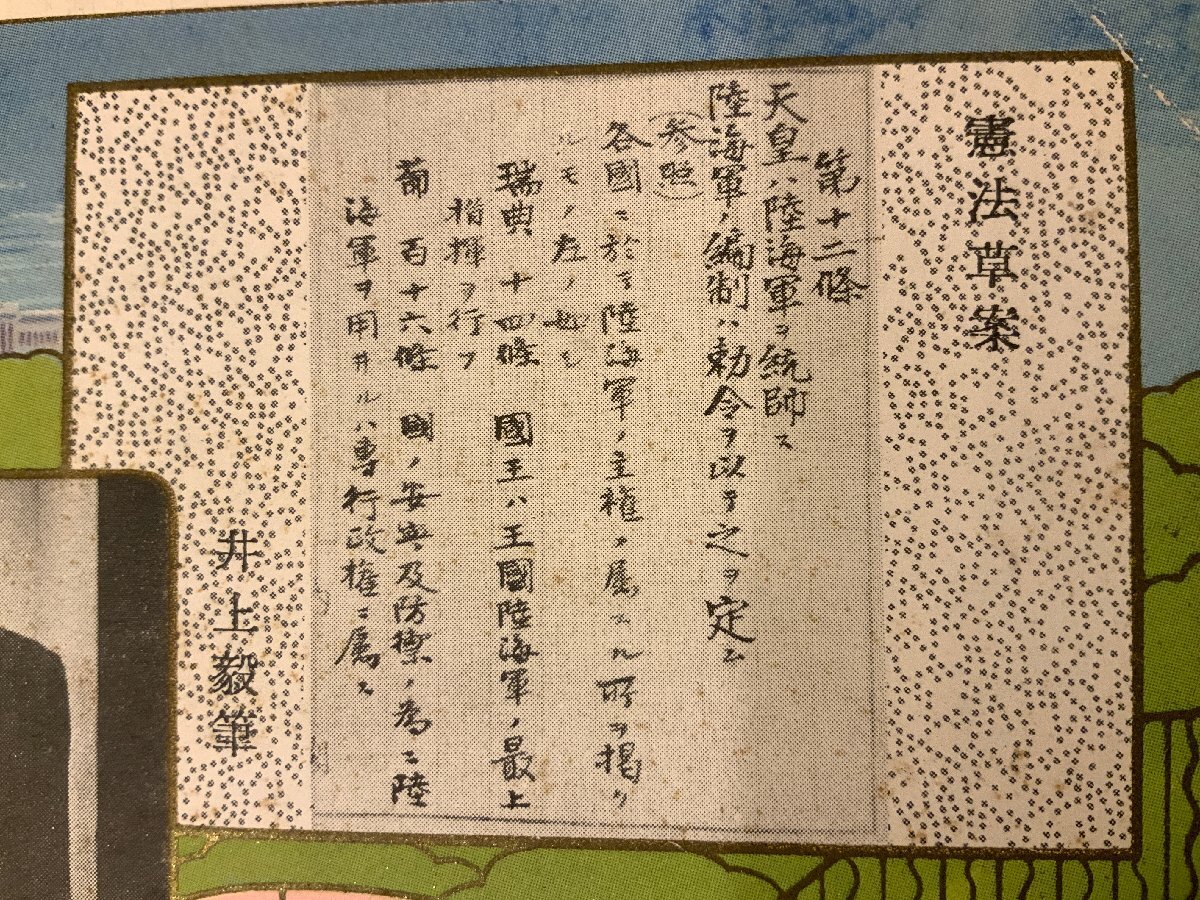 憲法草案
第十二條
天皇ハ陸海軍ヲ統帥ス
陸海軍ノ編制ハ勅令ヲ以テ之ヲ定ム
(参照)
各國ニ於テ陸海軍ノ主権ノ属スル所ヲ掲ク
ルモノ左ノ如シ
瑞典 十四條 國王ハ王國陸海軍ノ最上
指揮ヲ行フ
葡 百十六條 國ノ安寧及防禦ノ為ニ陸
海軍ヲ用井ルハ専行政権ニ属ス
井上毅筆